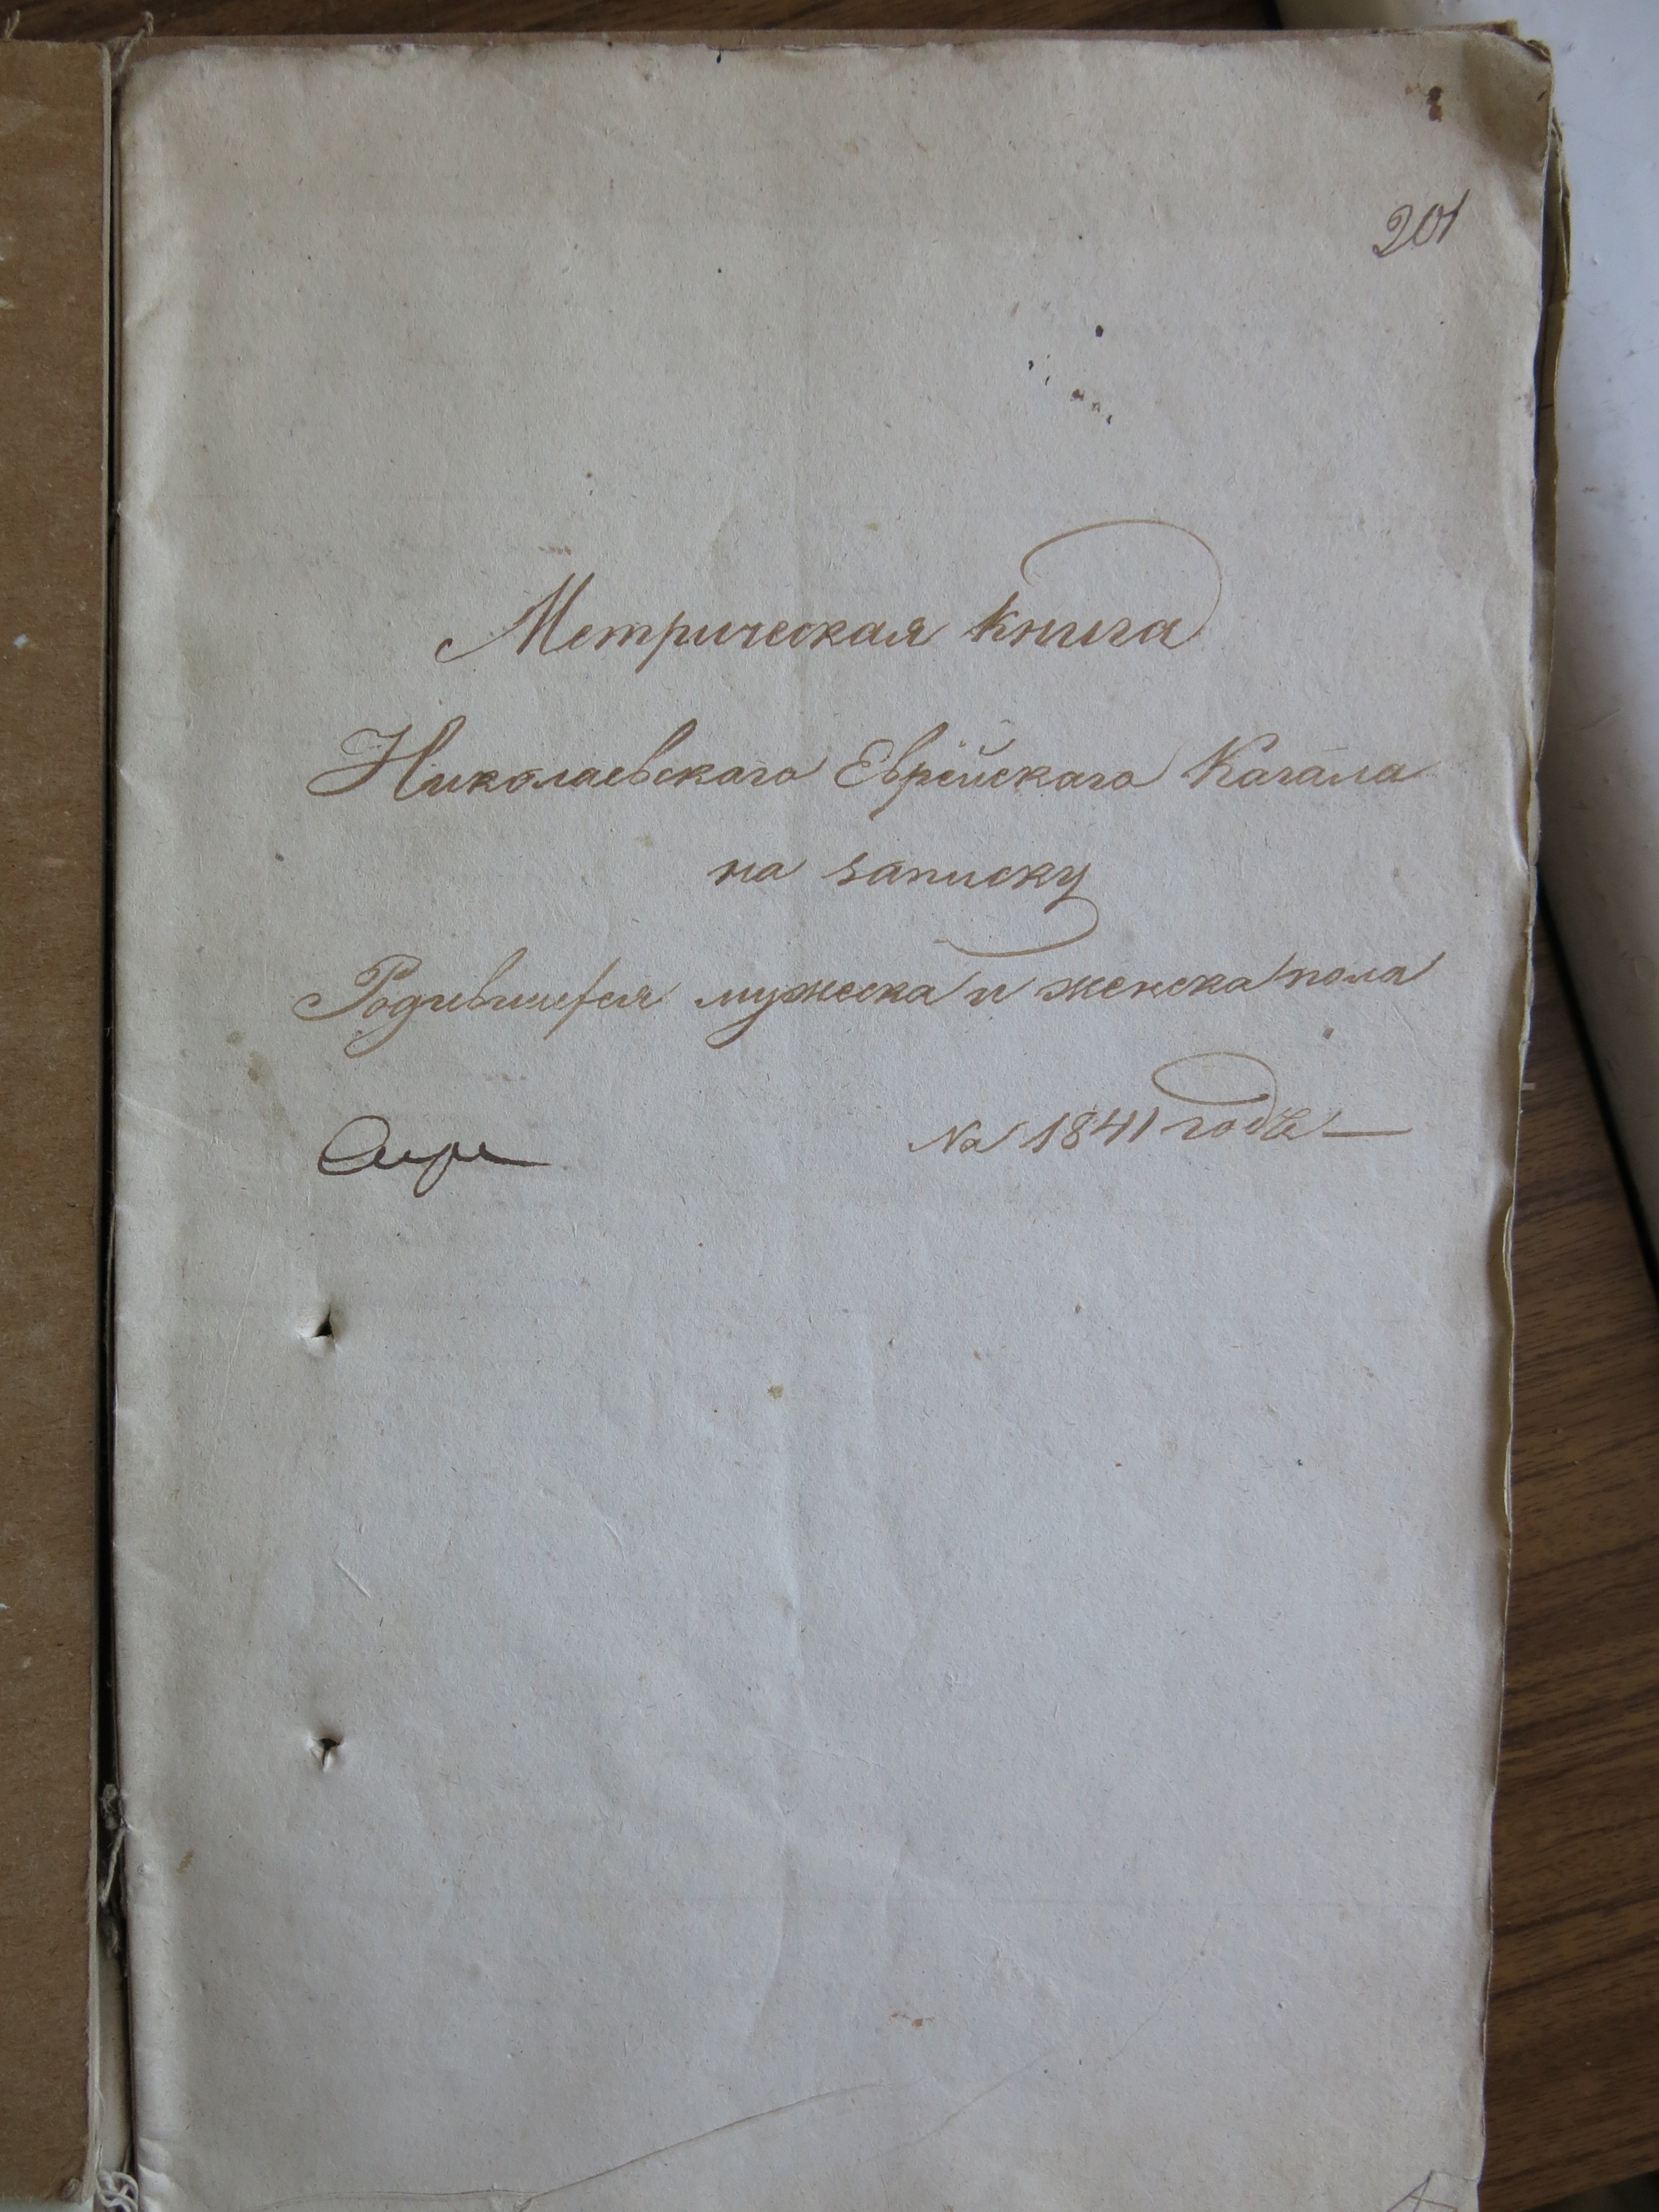 201
Метрическая книга
Николаевскаго Еврейскаго Кагала
на записку
Родившихся мужеска и женска пола
На 1841 годъ